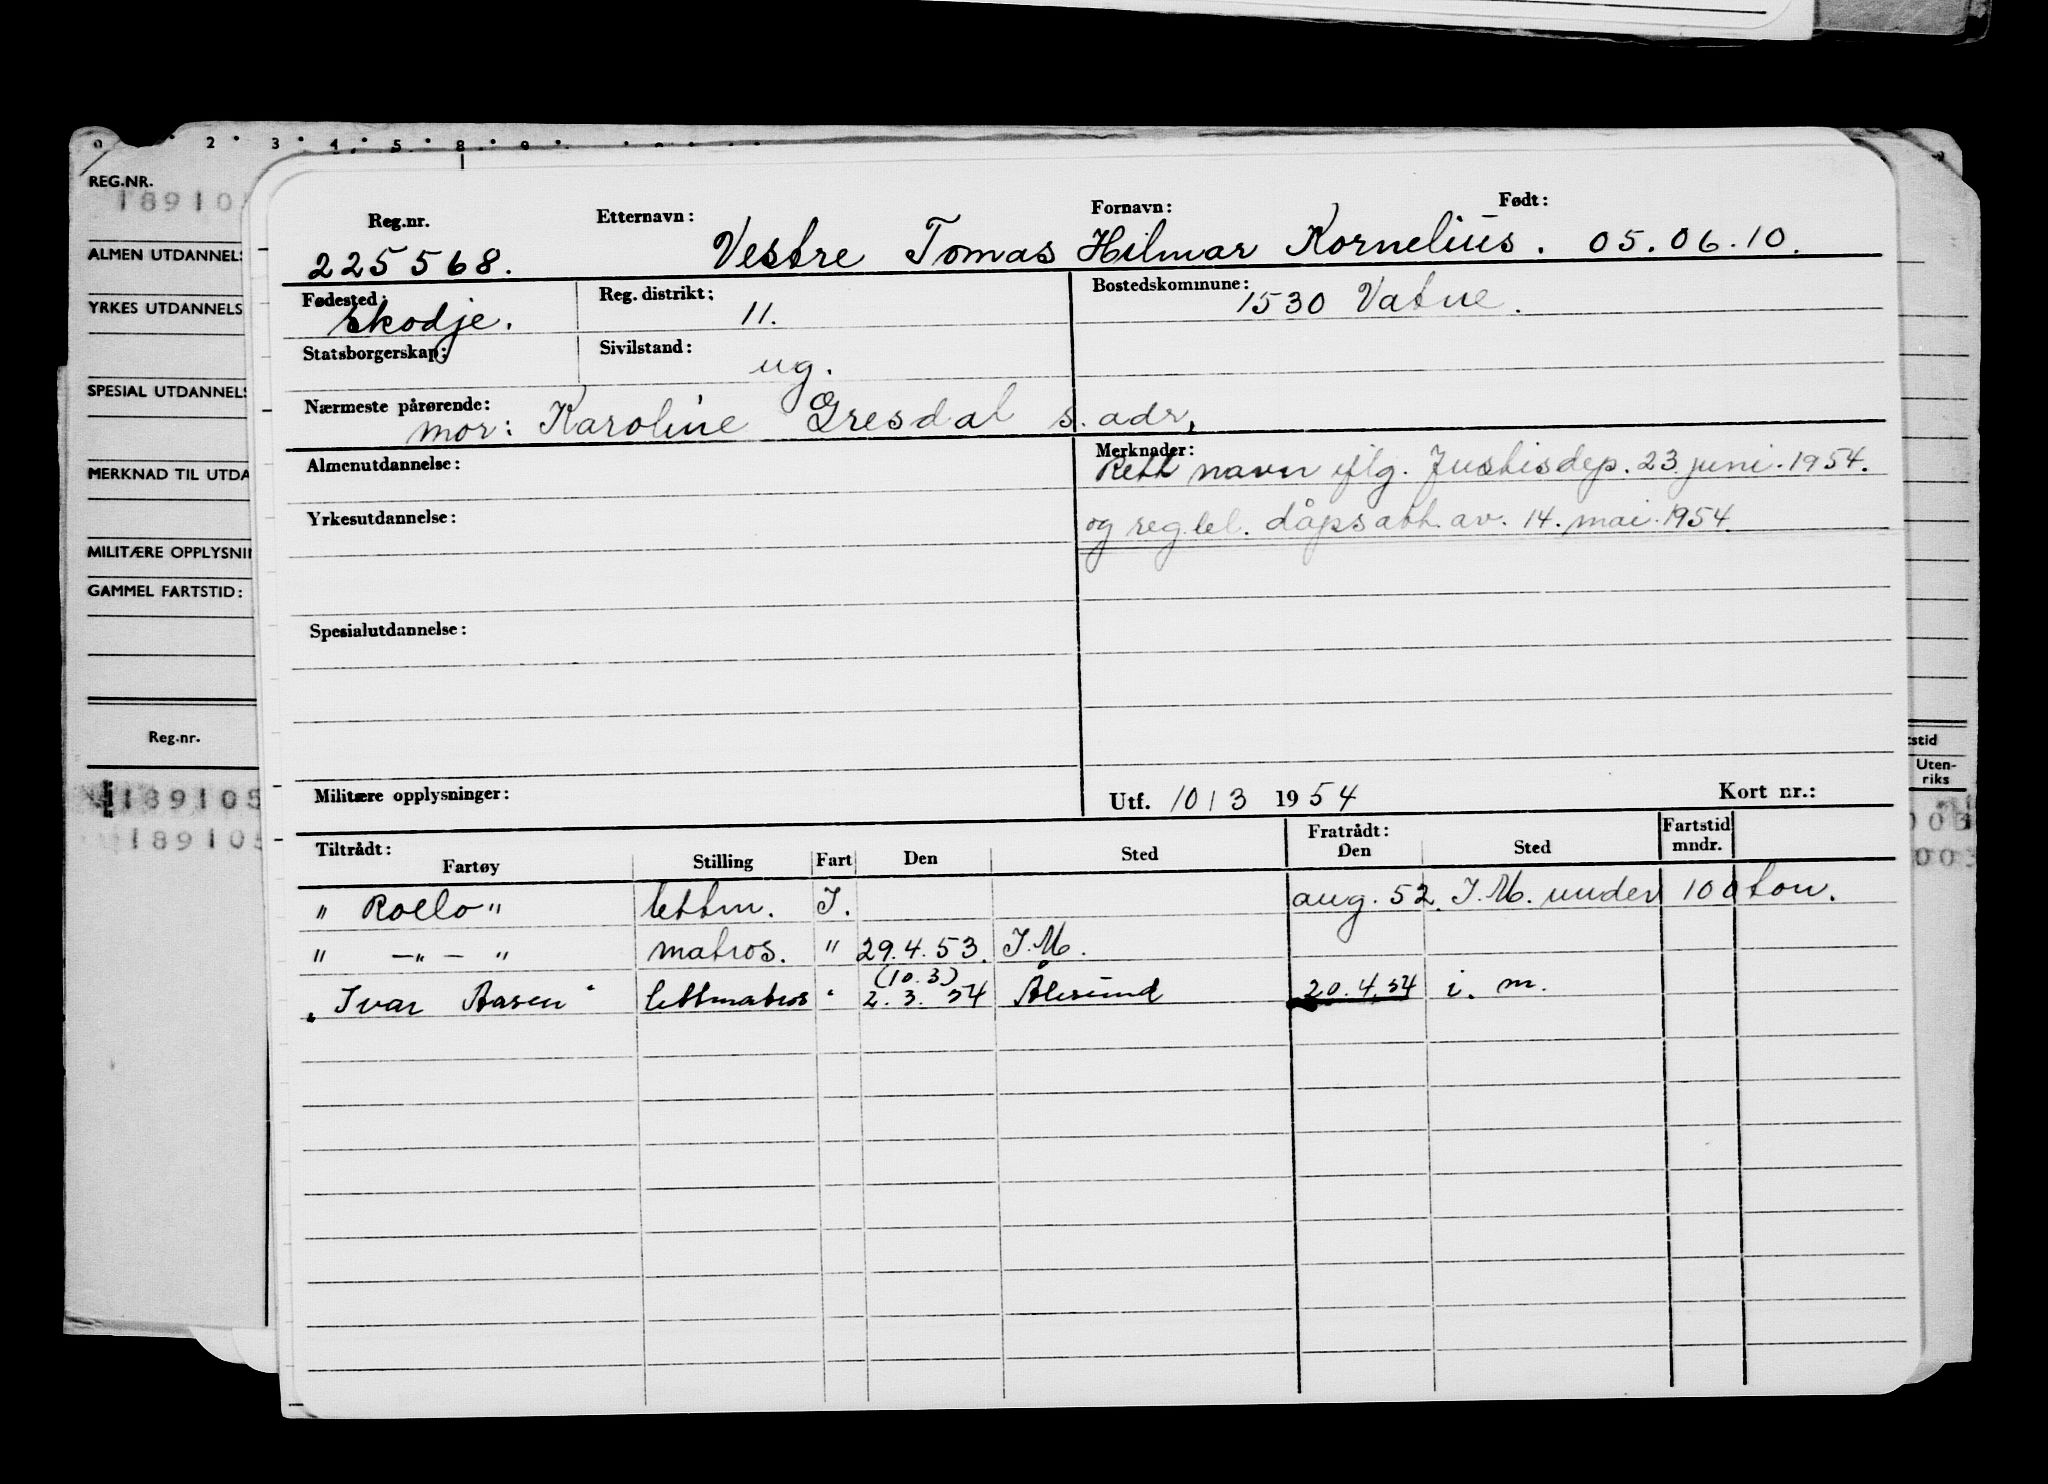 0 2 3 4 5 8 9
REG.NR.
189105
ALMEN UTDANNELS
YRKES UTDANNELS
SPESIAL UTDANNELS
MERKNAD TIL UTDA
MILITÆRE OPPLYSNIN
GAMMEL FARTSTID:
Reg.nr.
189105
189105
Reg.nr. Etternavn: Fornavn: Født:
225568. Vestre Tomas Hilmar Kornelius. 05.06.10.
Fødested: Reg. distrikt: Bostedskommune:
Skodje. 11. 1530 Vatne.
Statsborgerskap: Sivilstand:
ug.
Nærmeste pårørende:
mor: Karoline Gresdal s. adr,
Almenutdannelse: Merknader:
Rett navn iflg. Justisdep. 23. juni. 1954.
Yrkesutdannelse:
og reg.tel. dåpsatt. av. 14. mai. 1954.
Spesialutdannelse:
Militære opplysninger: Utf. 10/3 1954 Kort nr.:
Tiltrådt: Fratrådt: Fartstid mndr.
Fartøy Stilling Fart Den Sted Den Sted
" Rollo " lettm. I. aug. 52. I.M. under 100 ton.
" —„— " matros. " 29.4.53. I.M.
(10.3)
„Ivar Aasen" lettmatros " 2.3.54 Ålesund 20.4.54 i. m.
tstid
Uten-
riks
003
003